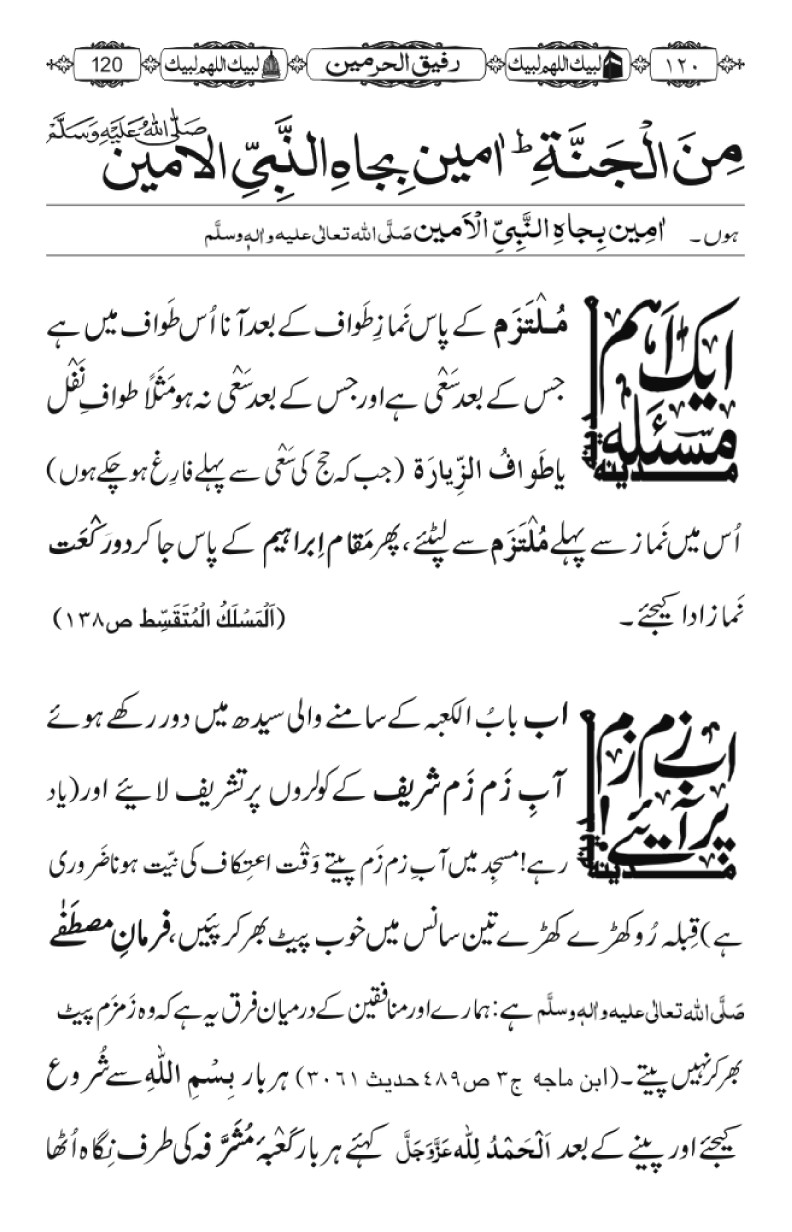 ۱۲۰ لبیك اللهم لبیك رفیق الحرمین لبیك اللهم لبیك 120
مِنَ الْجَنَّةِ ؕ اٰمین بِجاہِ النَّبِیِّ الامین صَلَّی اللہُ عَلَیْهِ وَسَلَّمْ
ہوں۔ اٰمِین بِجاہِ النَّبِیِّ الْاَمین صَلَّی اللہ تعالٰی علیہ و اٰلہٖ وسلَّم
ایک اَہم
مسئلہ
مدینہ
مدینہ
مُلْتَزَم کے پاس نَمازِ طَواف کے بعد آنا اُس طَواف میں ہے
جس کے بعد سَعْی ہے اور جس کے بعد سَعْی نہ ہو مَثَلًا طوافِ نَفْل
یا طَوافُ الزِّیارَۃ (جب کہ حج کی سَعْی سے پہلے فارِغ ہوچکے ہوں)
اُس میں نَماز سے پہلے مُلْتَزَم سے لپٹئے، پھر مَقامِ اِبراہیم کے پاس جا کر دو رَکْعَت
نَماز ادا کیجئے۔ (اَلْمَسْلَكُ الْمُتَقَسِّط ص۱۳۸)
اب زم زم
پر آیئے!
مدینہ
مدینہ
اب بابُ الکعبہ کے سامنے والی سیدھ میں دور رکھے ہوئے
آبِ زَم زَم شریف کے کولروں پر تشریف لایئے اور (یاد
رہے! مسجِد میں آبِ زم زَم پیتے وَقْت اعتِکاف کی نیّت ہونا ضَروری
ہے) قِبلہ رُو کھڑے کھڑے تین سانس میں خوب پیٹ بھر کر پئیں، فرمانِ مصطَفٰے
صَلَّی اللہ تعالٰی علیہ و اٰلہٖ وسلَّم ہے: ہمارے اور منافقین کے درمیان فرق یہ ہے کہ وہ زَمزَم پیٹ
بھر کر نہیں پیتے۔ (ابن ماجہ ج۳ ص۴۸۹ حدیث ۳۰۶۱) ہر بار بِسْمِ اللہِ سے شُروع
کیجئے اور پینے کے بعد اَلْحَمْدُ لِلّٰہ عَزَّوَجَلَّ کہئے ہر بار کَعْبَۂ مُشَرَّفہ کی طرف نِگاہ اُٹھا